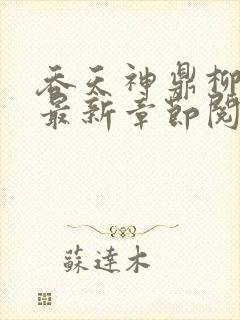 吞天神鼎柳
最新章节阅
蘇達木